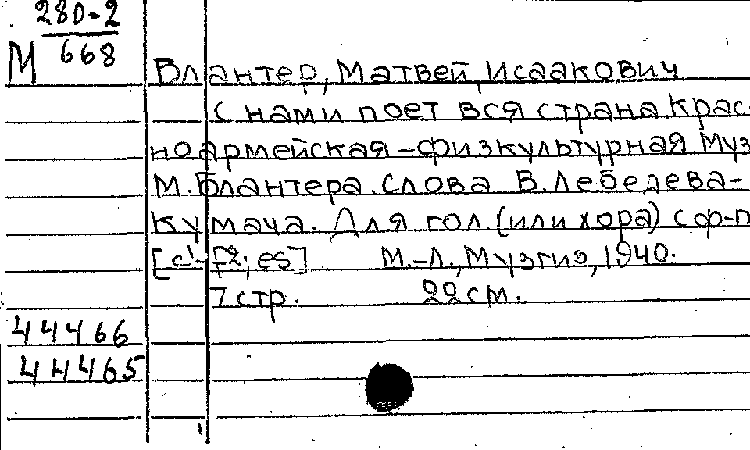 280-2
М 668
Блантер, Матвей, Исаакович
С нами поет вся страна. Крас-
ноармейская-физкультурная Муз
М. Блантера. Слова В. Лебедева-
Кумача. Для гол. (или хора) с ф-п
[c¹-f2; es] М.-Л., Музгиз, 1940.
7 стр. 22 см.
44466
44465